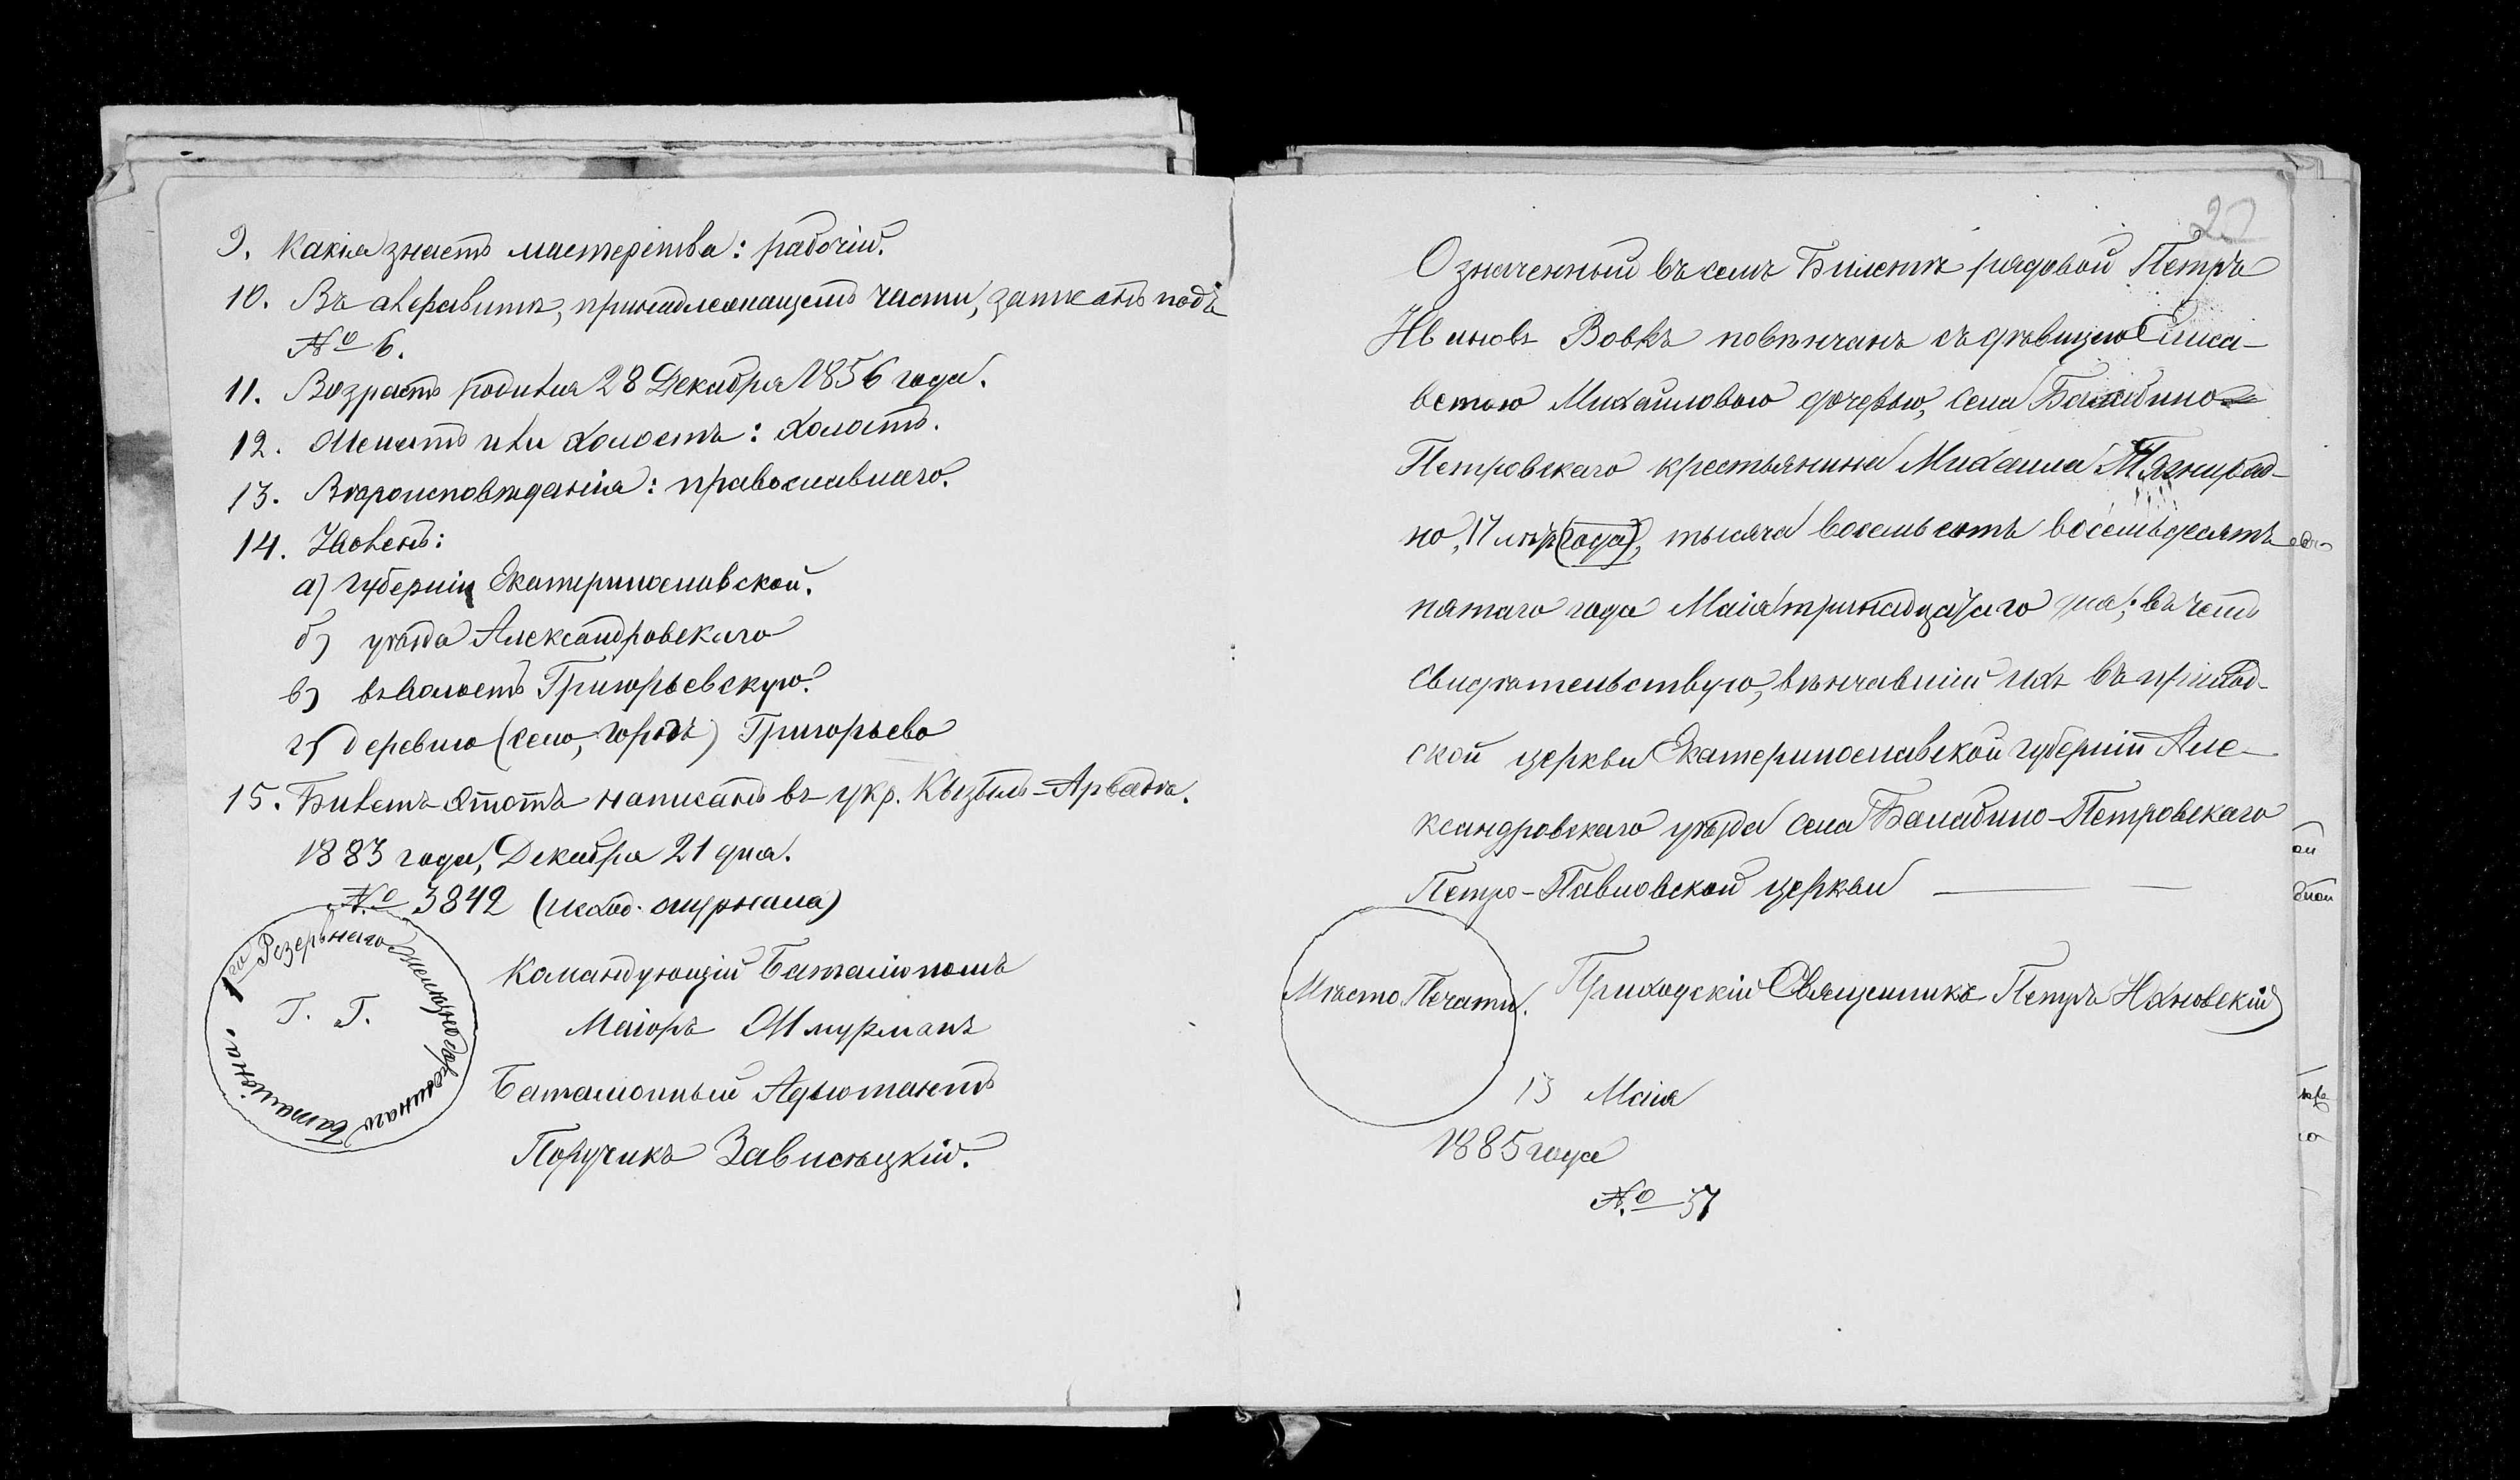 9. Какія знаетъ мастерства: рабочій.
10. Въ алфавитѣ, принадлежащемъ части, записанъ подъ
№ 6.
11. Возрастъ родился 28 Декабря 1856 года.
12. Женатъ или холостъ: холостъ.
13. Вѣроисповѣданія: православнаго.
14. Уволенъ:
а) Губерніи Екатеринославской.
б) уѣзда Александровскаго
в) въ волость Григорьевскую.
г) деревню (село, городъ) Григорьево
15. Билетъ этотъ написанъ въ укр. Кызылъ-Арватѣ.
1883 года, Декабря 21 дня.
№ 3842 (исход. журнала)
1го Резервнаго Желѣзнодорожнаго Баталіона.
Г. Г.
Командующій Баталіономъ
Маіоръ
Баталіонный Адъютантъ
Поручикъ
20
Означенный въ семъ Билетѣ рядовой Петръ
Ивановъ Вовкъ повѣнчанъ съ дѣвицею Елиса-
ветою Михаиловою дочерью, села Балабино-
Петровскаго крестьянина Михаила Тягнирад-
но, 17 лѣтъ (года), тысяча восемьсотъ восемьдесятъ
пятаго года Маія тринадцатаго дня; въ чемъ
свидѣтельствую, вѣнчавшій ихъ въ приход-
ской церкви Екатеринославской губерніи Але-
ксандровскаго уѣзда села Балабино-Петровскаго
Петро-Павловской церкви
Мѣсто Печати. Приходскій Священникъ Петръ
13 Маія
1885 года
№ 57